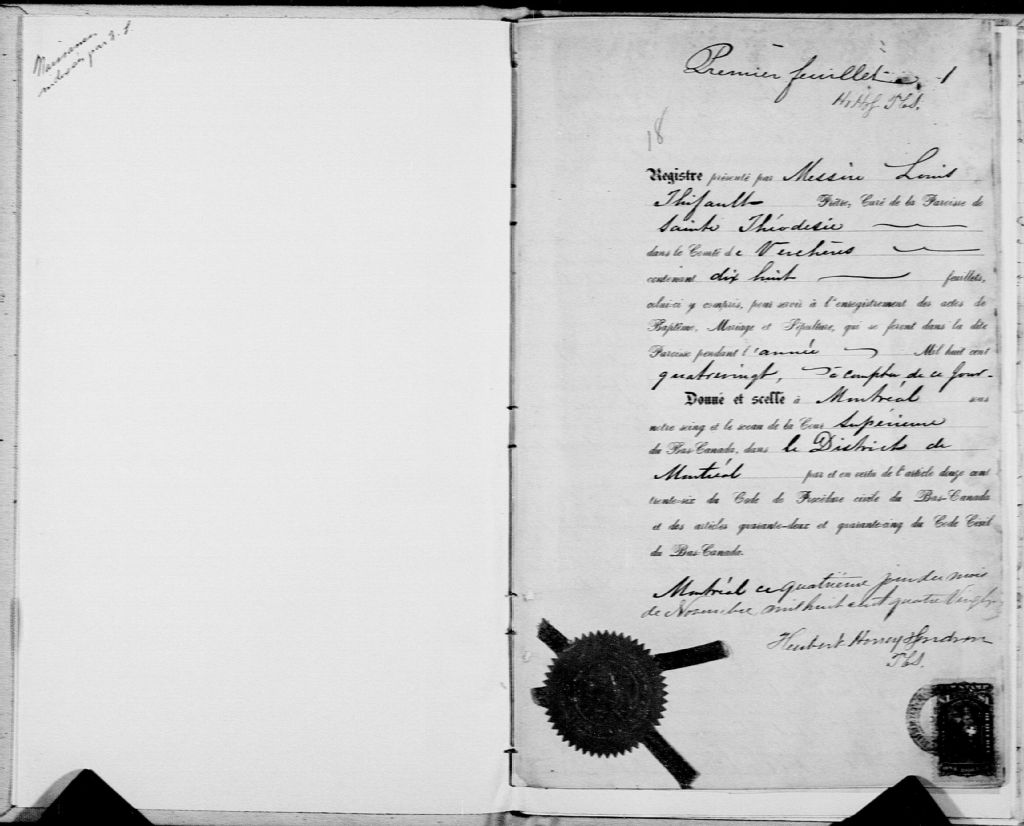 Premier feuillet 1
18
Registre présenté par Messire Louis
Thifault Prêtre, Curé de la Paroisse de
Sainte Théodosie
dans le Comté de Verchères
contenant dix huit feuillets,
celui-ci y compris, pour servir à l'enregistrement des actes de
Baptême, Mariage et Sépulture, qui se feront dans la dite
Paroisse pendant l'année Mil huit cent
quatrevingt, à compter de ce jour.
Donné et scellé à Montréal sous
notre seing et le sceau de la Cour Supérieure
du Bas-Canada, dans le District de
Montréal par et en vertu de l'article douze cent
trente-six du Code de Procédure civile du Bas-Canada
et des articles quarante-deux et quarante-cinq du Code Civil
du Bas-Canada.
Montréal ce quatrième jour du mois
de Novembre mil huit cent quatre Vingt
Herbert Honey